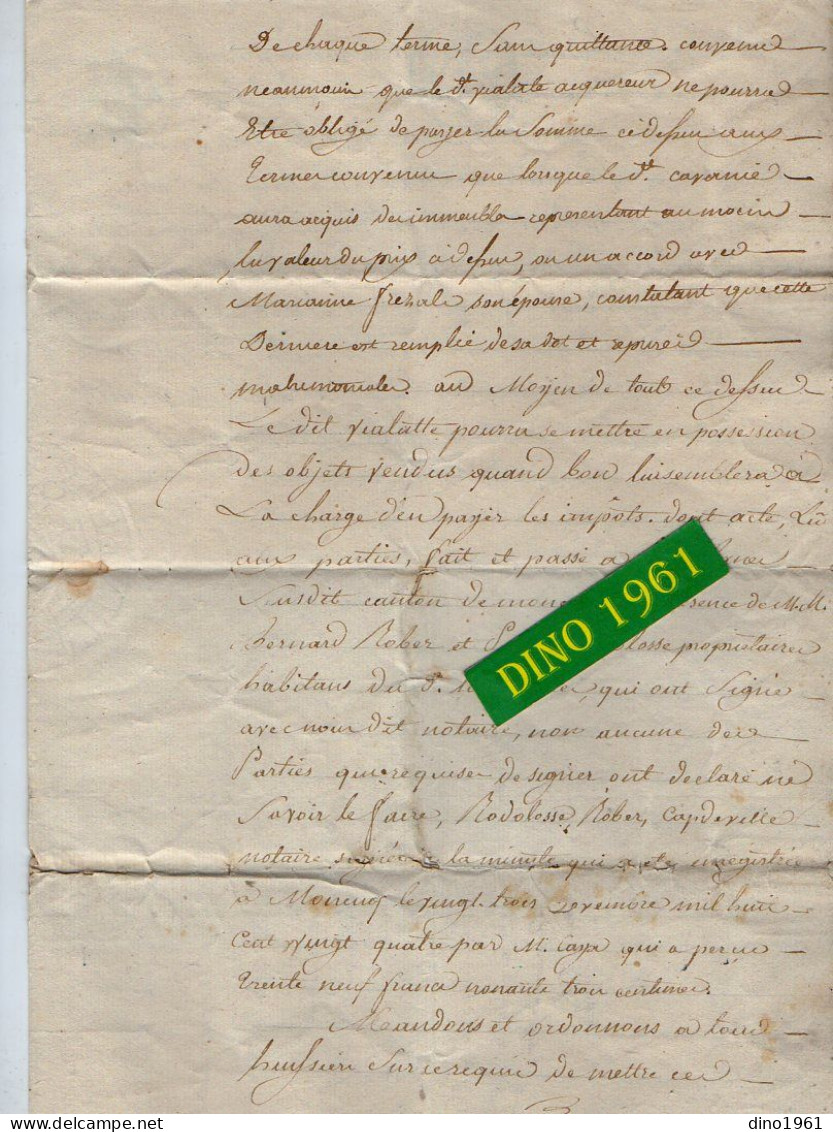 De chaque terme, sans quittance. convenu
neanmoins que le dt. vialate acquereur ne pourra
Etre obligé de payer la Somme cidessus aux
Termes convenus que lorsque le dt. cavanié
aura acquis des immeubles representant au moins
la valeur du prix cidessus, ou un accord avec
Marianne frezals son épouse, constatant que cette
Derniere est remplie de sa dot et reprises
matrimoniales. au Moyen de tout ce dessus
Le dit vialatte pourra se mettre en possession
Des objets vendus quand bon lui semblera a
La charge d'en payer les impôts. dont acte, Lu
aux parties, fait et passé a
Susdit canton de presence de M.M.
Bernard Rober et proprietaires
habitans du d. qui ont Signé
avec nous dit notaire, non aucune des
Parties qui requises de signer ont declaré ne
Savoir le faire, Rodolosse, Rober, Capdeville
notaire signés a la minute qui a eté enregistrée
a Moncuq le vingt trois novembre mil huit
Cent vingt quatre par M. Caya qui a perçu
Trente neuf francs nonante trois centimes.
Mandons et ordonnons a tous
huissiers Sur ce requis de mettre ces
DINO 1961
dino1961